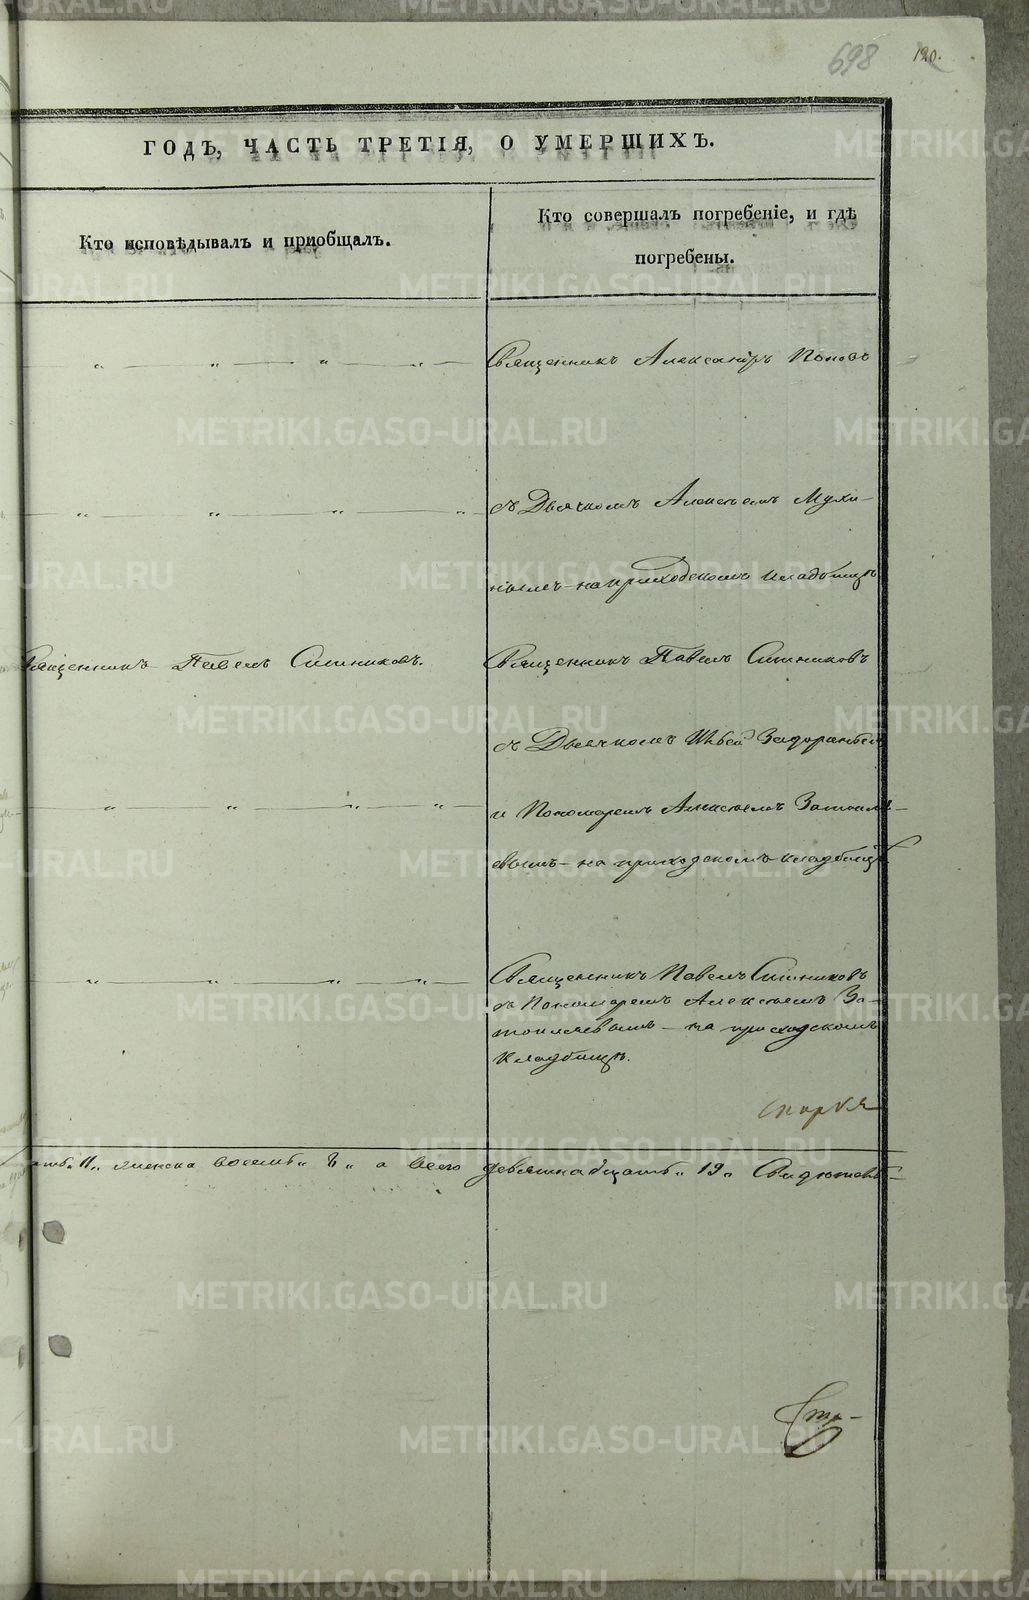 698 120.
ГОДЪ, ЧАСТЬ ТРЕТІЯ, О УМЕРШИХЪ.
Кто исповѣдывалъ и приобщалъ.
Кто совершалъ погребеніе, и гдѣ
погребены.
Священникъ Александръ Поповъ
съ Дьячкомъ Алексѣемъ Мухи-
нымъ на приходскомъ кладбищѣ
Священникъ Павелъ Ситниковъ.
Священникъ Павелъ Ситниковъ
съ Дьячкомъ
и Пономаремъ Алексѣемъ Затопля-
евымъ - на приходскомъ кладбищѣ
Священникъ Павелъ Ситниковъ
съ Пономаремъ Алексѣемъ За-
топляевымъ - на приходскомъ
кладбищѣ.
женска восемь „ 8 „ а всего девятнадцать „ 19 „
METRIKI.GASO-URAL.RU